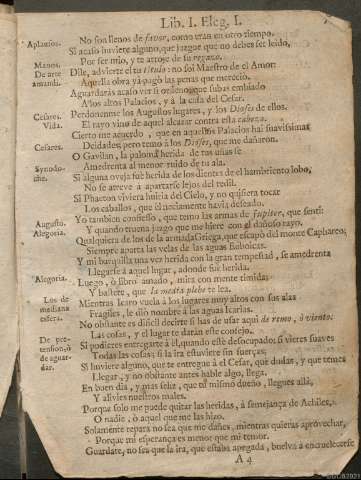 Lib. I. Eleg. I.
Aplausos. No son llenos de favor, como eran en otro tiempo.
Si acaso huviere alguno, que juzgue que no debes ser leido,
Manos. Por ser mio, y te arroje de su regazo.
De arte Dile, advierte el tu titulo: no soi Maestro de el Amor:
amandi. Aquella obra yà pagò las penas que merecio.
Aguardaràs acaso ver si ordeno, que subas embiado
A los altos Palacios, y à la casa del Cesar.
Cesares. Perdonenme los Augustos lugares, y los Dioses de ellos.
Vida. El rayo vino de aquel alcazar contra esta cabeza.
Cierto me acuerdo, que en aquellos Palacios hai suavissimas
Cesares. Deidades; pero temo à los Dioses, que me dañaron.
O Gavilan, la paloma herida de tus uñas se
Synodo- Amedrenta al menor ruido de tu ala.
che. Si alguna oveja fue herida de los dientes de el hambriento lobo,
No se atreve à apartarse lejos del redil.
Si Phaeton viviera huiria del Cielo, y no quisiera tocar
Los caballos, que èl neciamente havia deseado.
Augusto. Yo tambien confiesso, que temo las armas de Jupiter, que sentì:
Alegoria. Y quando truena juzgo que me hiere con el dañoso rayo.
Qualquiera de los de la armada Griega, que escapò del monte Caphareo;
Siempre aparta las velas de las aguas Euboicas.
Y mi barquilla una vez herida con la gran tempestad, se amedrenta
Llegarse à aquel lugar, adonde fue herida.
Alegoria. Luego, ò libro amado, mira con mente timida;
Y basete, que la media plebe te lea.
Los de Mientras Icaro vuela à los lugares muy altos con sus alas
mediana Fragiles, le diò nombre à las aguas Icarias.
esfera. No obstante es dificil decirte si has de usar aqui de remo, ò viento:
Las cosas, y el lugar te daràn este consejo.
De pre- Si pudieres entregarte à èl, quando estè desocupado; si vieres suaves
tension, ò Todas las cosas; si la ira estuviere sin fuerças;
de aguar- Si huviere alguno, que te entregue à el Cesar, que dudas, y que temes
dar. Llegar, y no obstante antes hable algo, llega.
En buen dia, y mas feliz, que tù mismo dueño, llegues allà,
Y alivies nuestros males.
Porque solo me puede quitar las heridas, à semejança de Achiles,
O nadie, ò aquel que me las hizo.
Solamente repara no sea que me dañes, mientras quieras aprovechar,
Porque mi esperança es menor que mi temor.
Guardate, no sea que la ira, que estaba apagada, buelva à encruelecerse
A 4